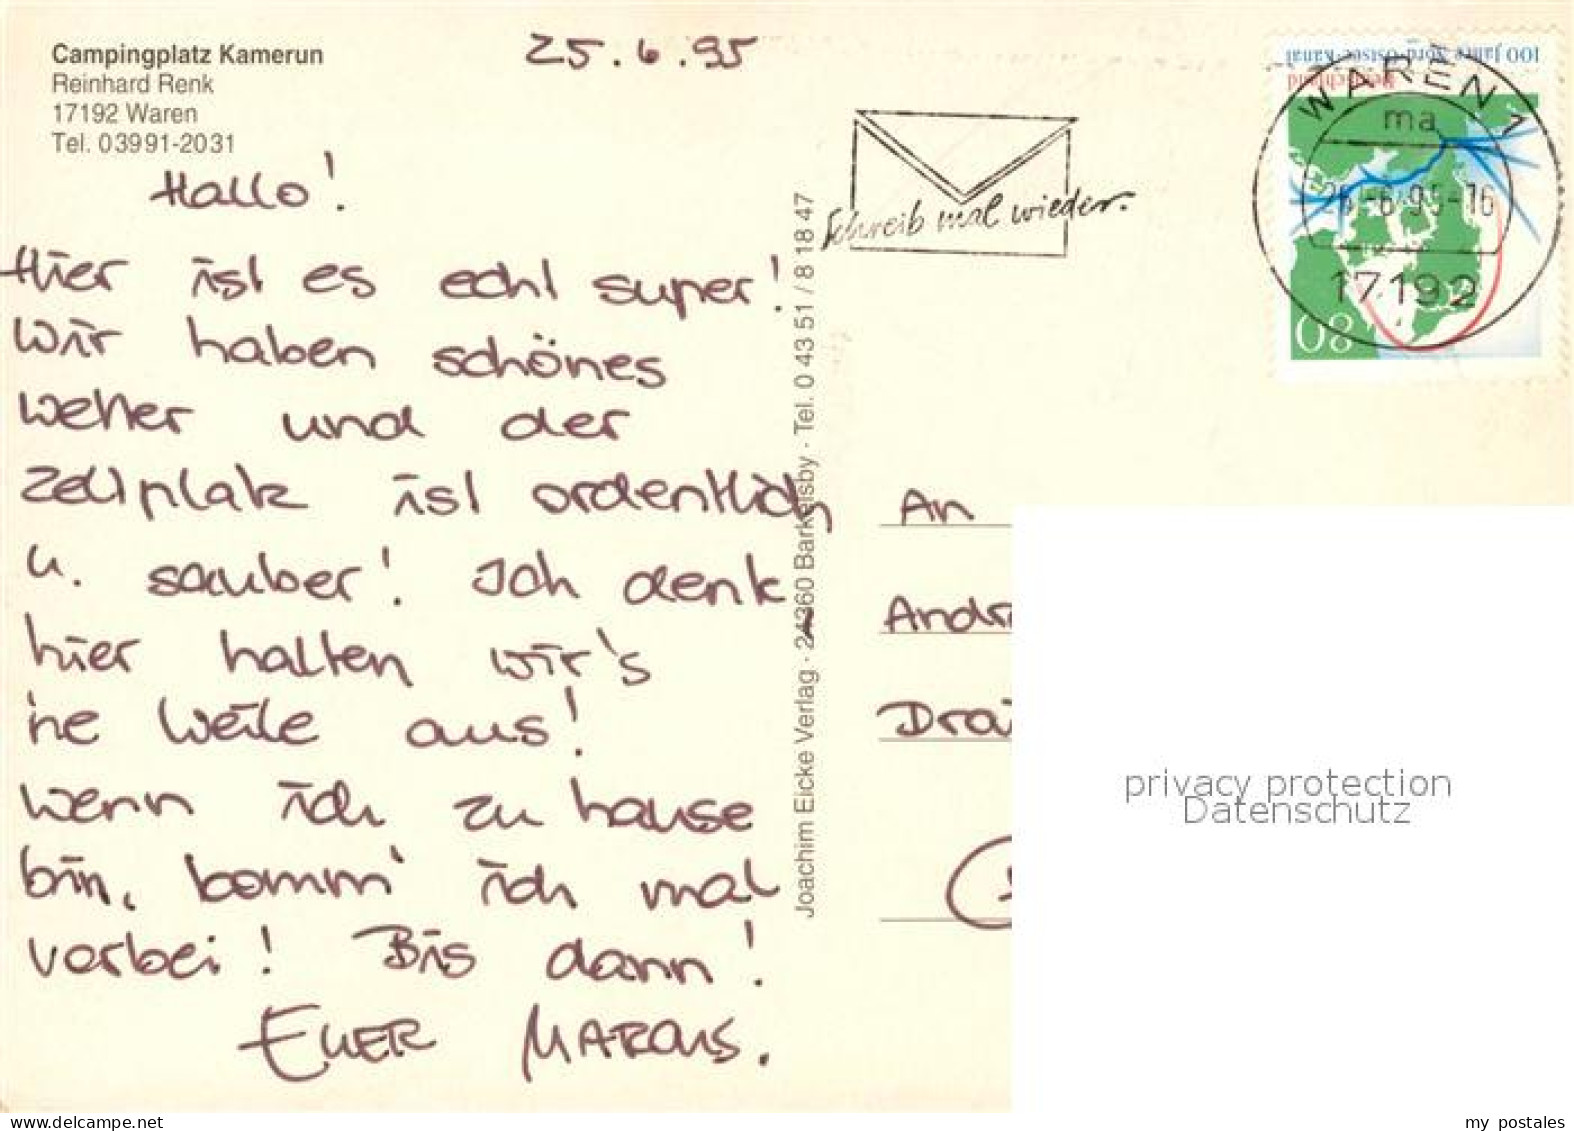 Campingplatz Kamerun
Reinhard Renk
17192 Waren
Tel. 03991-2031
25.6.95
Hallo!
Hier ist es echt super!
Wir haben schönes
Wetter und der
Zeltplatz ist ordentlich
u. sauber! Ich denk,
hier halten wir's
'ne Weile aus!
Wenn ich zu hause
bin, komm' ich mal
vorbei! Bis dann!
EUER MARCUS.
Joachim Eicke Verlag · 24360 Barkelsby · Tel. 0 43 51 / 8 18 47
Schreib mal wieder.
100 Jahre Nord-Ostsee-Kanal
Deutschland
80
WAREN 1
ma
-6.95-16
17192
An
Andr
Drai
privacy protection
Datenschutz
www.delcampe.net
my_postales